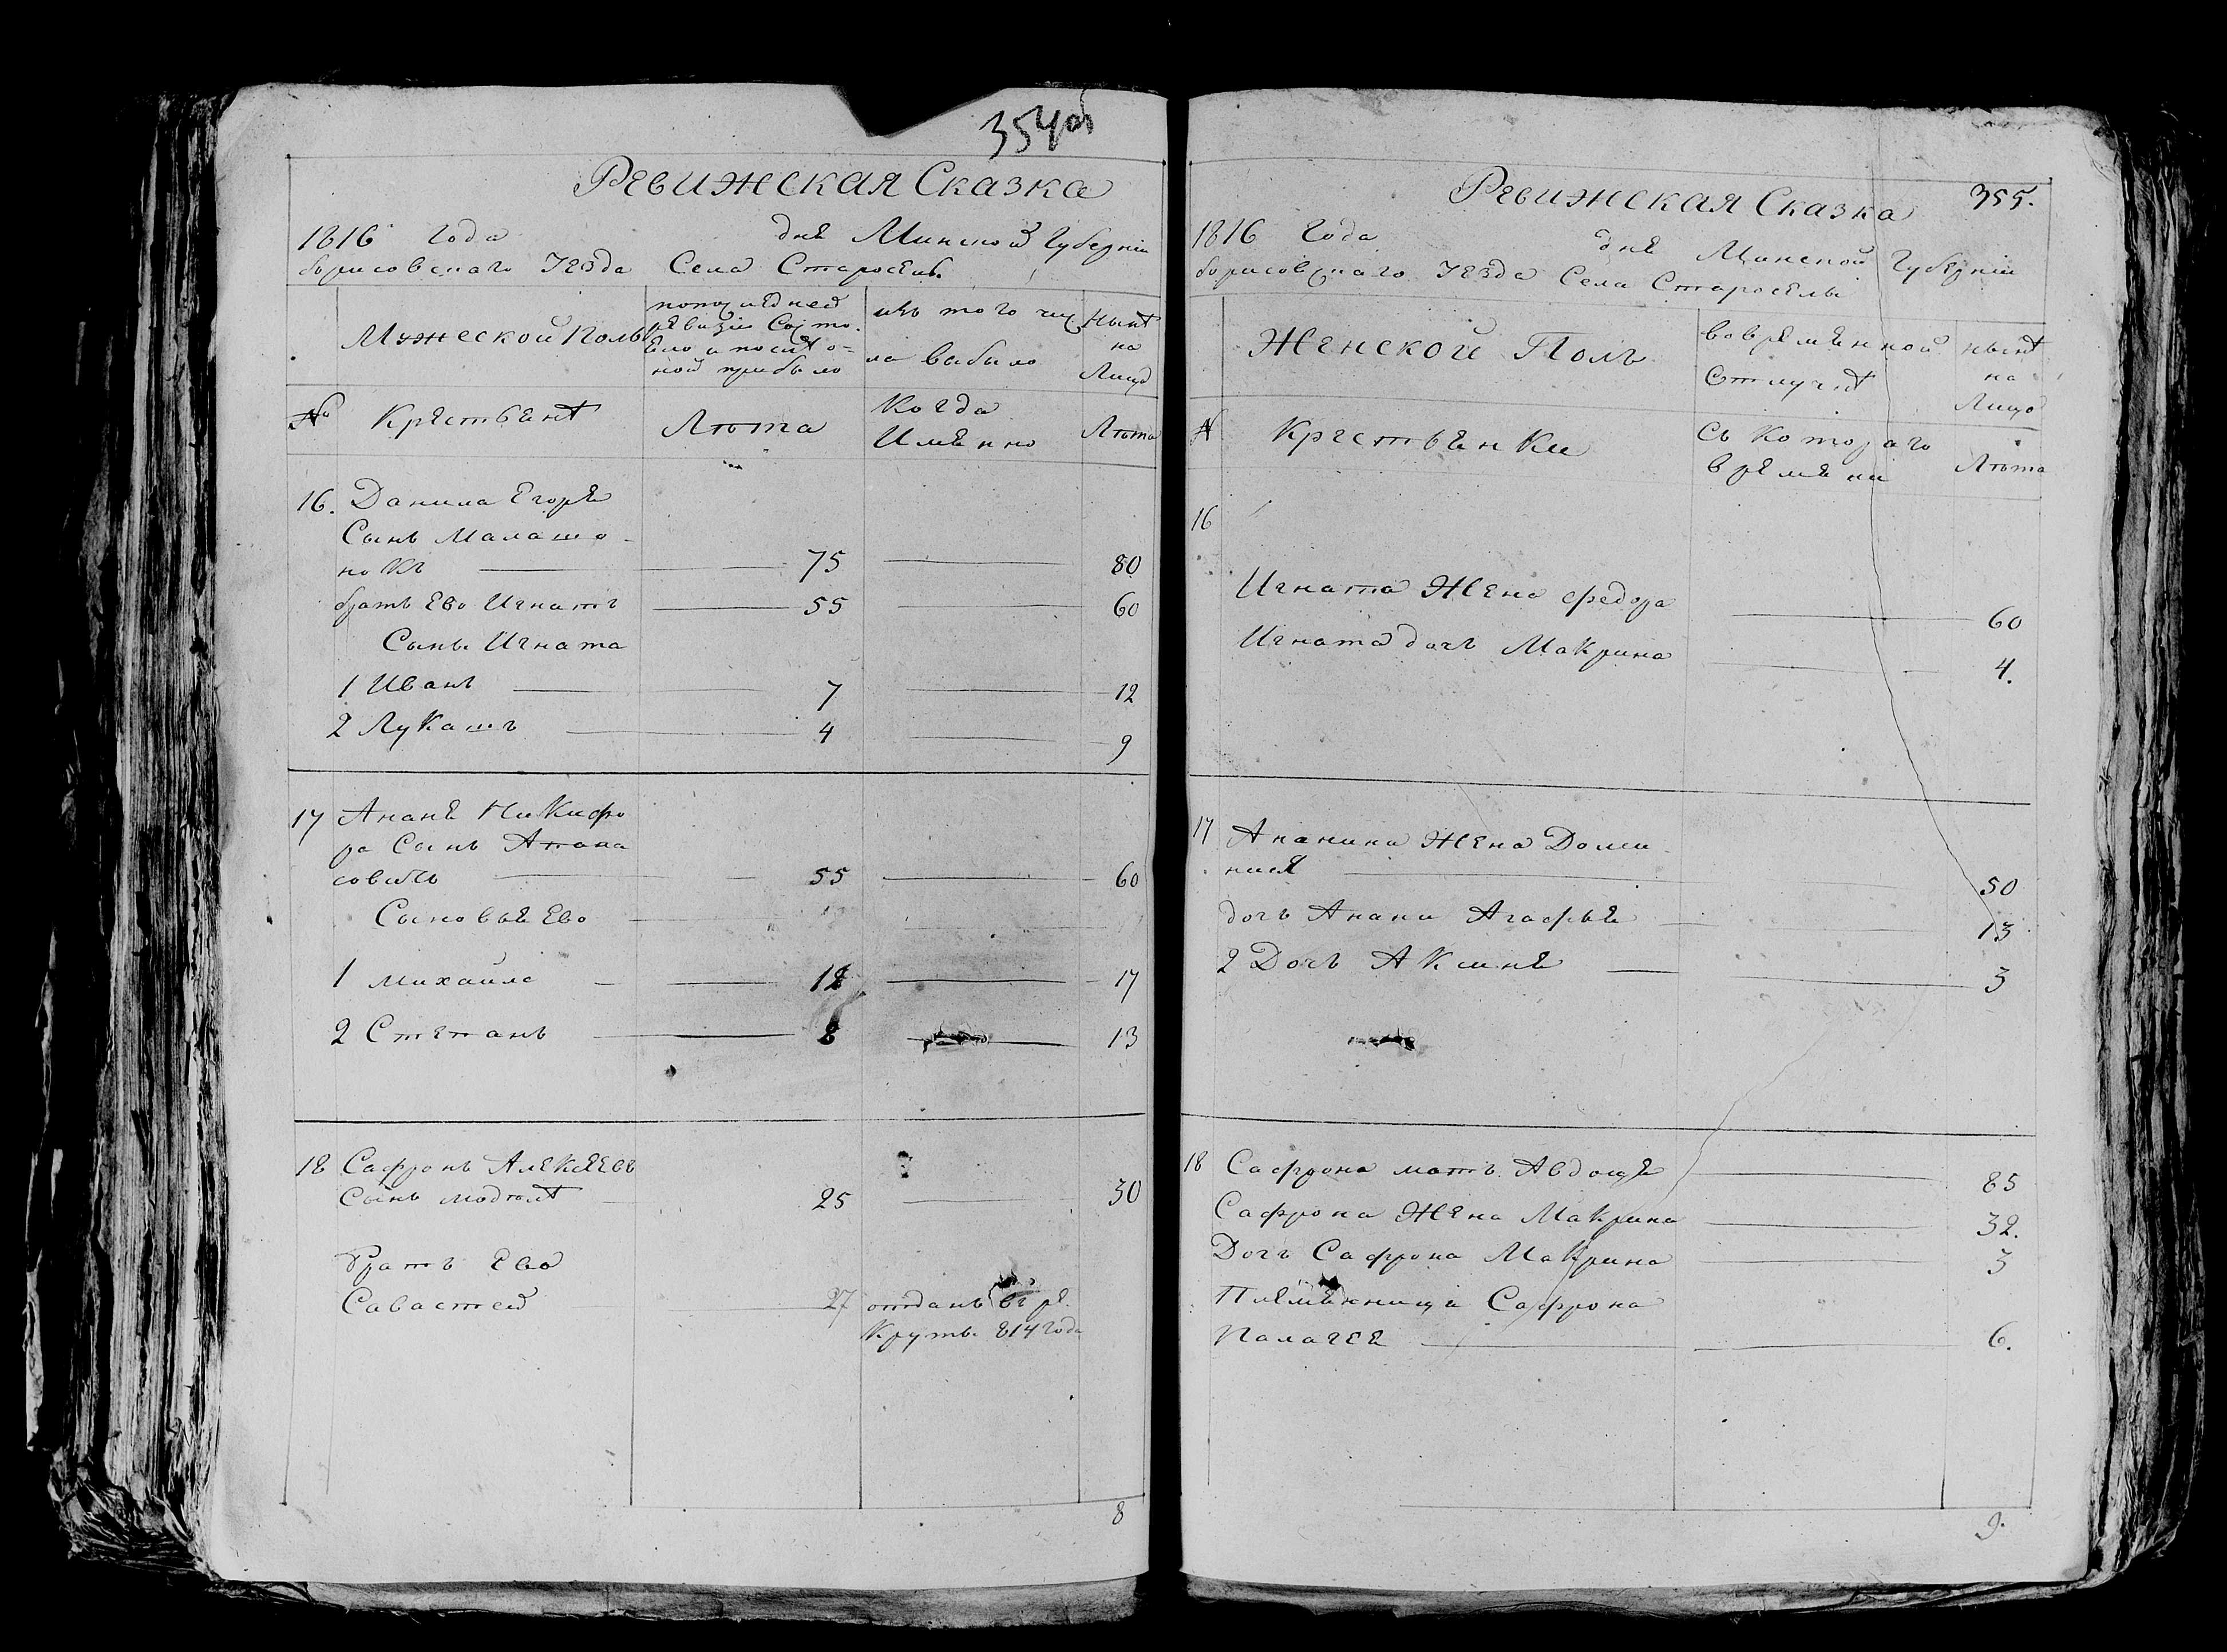 354об
Ревижская Сказка
1816 года дня Минской Губернiи
борисовскаго Уезда Села Старосель
Мужеской Полъ
по последней
ревизiи Состо-
яло и после о-
ной прибыло
изъ того чис
ла выбыло
Ныне
на
Лицо
№ Крестьяне
Лѣта
Когда
Именно
Лѣта
16. Данила Егоря
Сынъ Малашо-
нокъ 75 80
братъ Ево Игнатъ 55 60
Сыны Игната
1 Иванъ 7 12
2 Лукашъ 4 9
17 Ананя Никифо
ра Сынъ Апана
совичъ 55 60
Сыновья Ево
1 Михайла 12 17
2 Степанъ 8 13
18 Сафронъ Алексеевъ
Сынъ 25 30
Братъ Ево
Савастей 27 отданъ въ ре
крутъ 814 года
8
355.
Ревижская Сказка
1816 Года дня Минской Губернiи
борисовскаго Уезда Села Старосельи
Женской Полъ
во временной
Отлучке
ныне
на
Лицо
№ Крестьянки
Съ Котораго
времени
Лѣта
16
Игната Жена Федора 60
Игната дочъ Макрина 4.
17 Ананина Жена Доми
ния 50
дочъ Анани Агафья 13
2 Дочъ Акиня 3
18 Сафрона матъ Авдоця 85
Сафрона Жена Макрина 32.
Дочъ Сафрона Макрина 3
Племянница Сафрона
Палагея 6.
9.